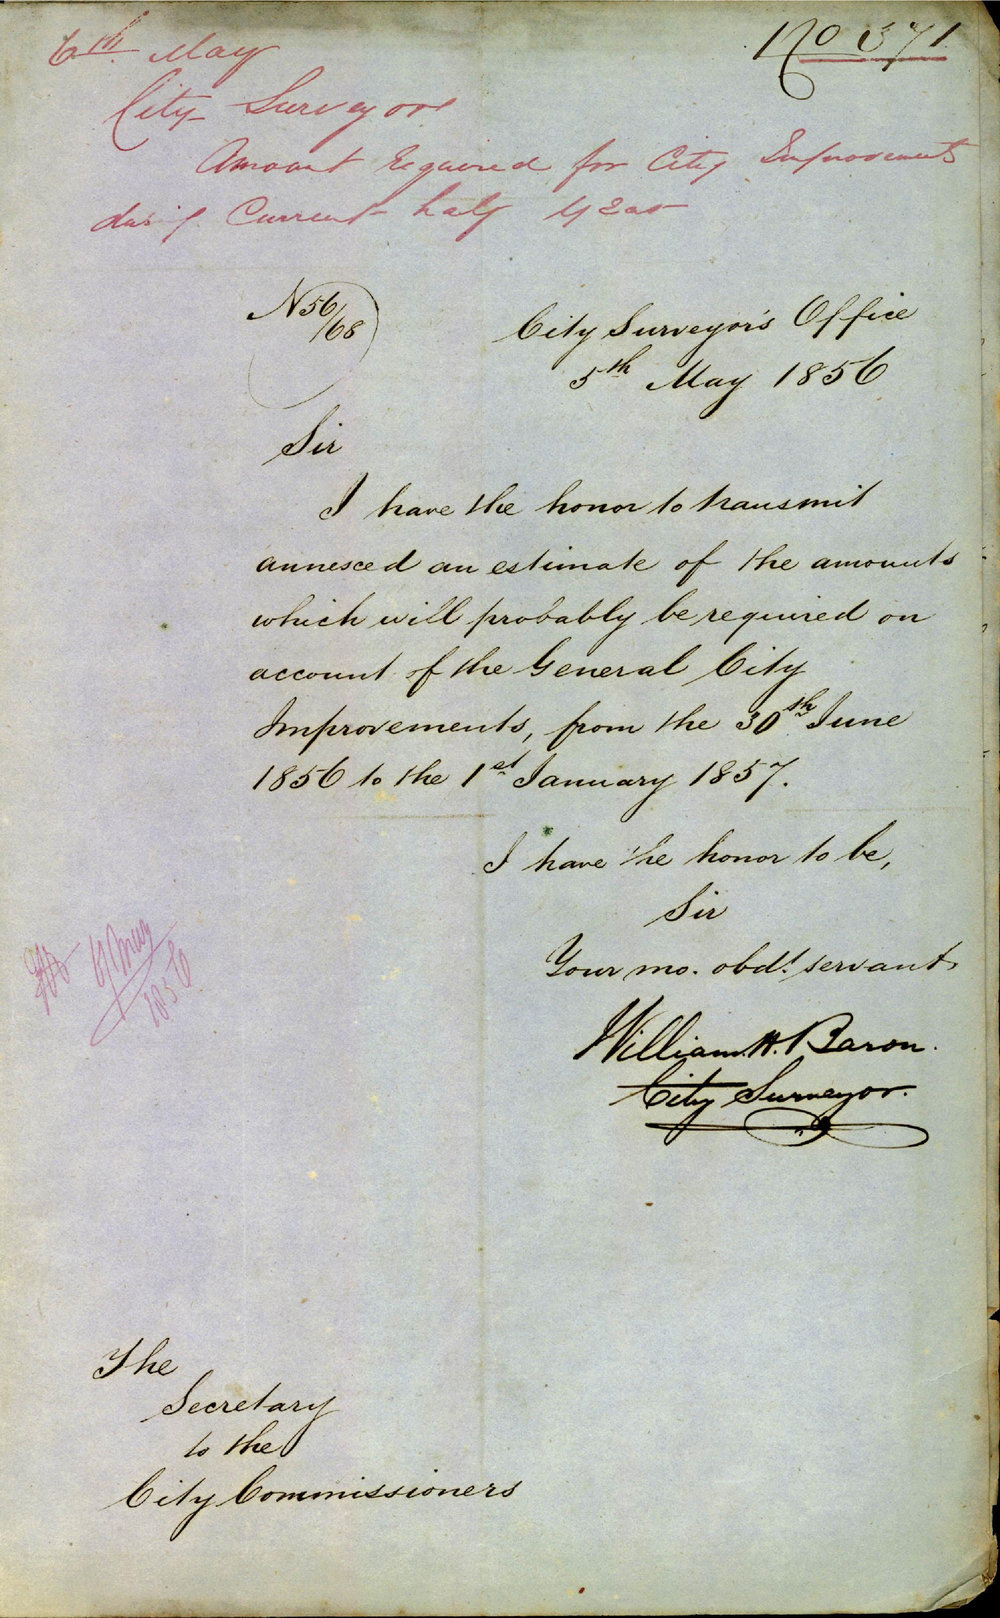 No 371
6th May
City Surveyor
Amount Required for City Improvements
during Current half year
N 56/68
City Surveyor's Office
5th May 1856
Sir
I have the honor to transmit
annexed an estimate of the amounts
which will probably be required on
account of the General City
Improvements, from the 30th June
1856 to the 1st January 1857.
I have the honor to be,
Sir
Your mo. obdt. servant
William H. Baron.
City Surveyor.
May
1856
The
Secretary
to the
City Commissioners